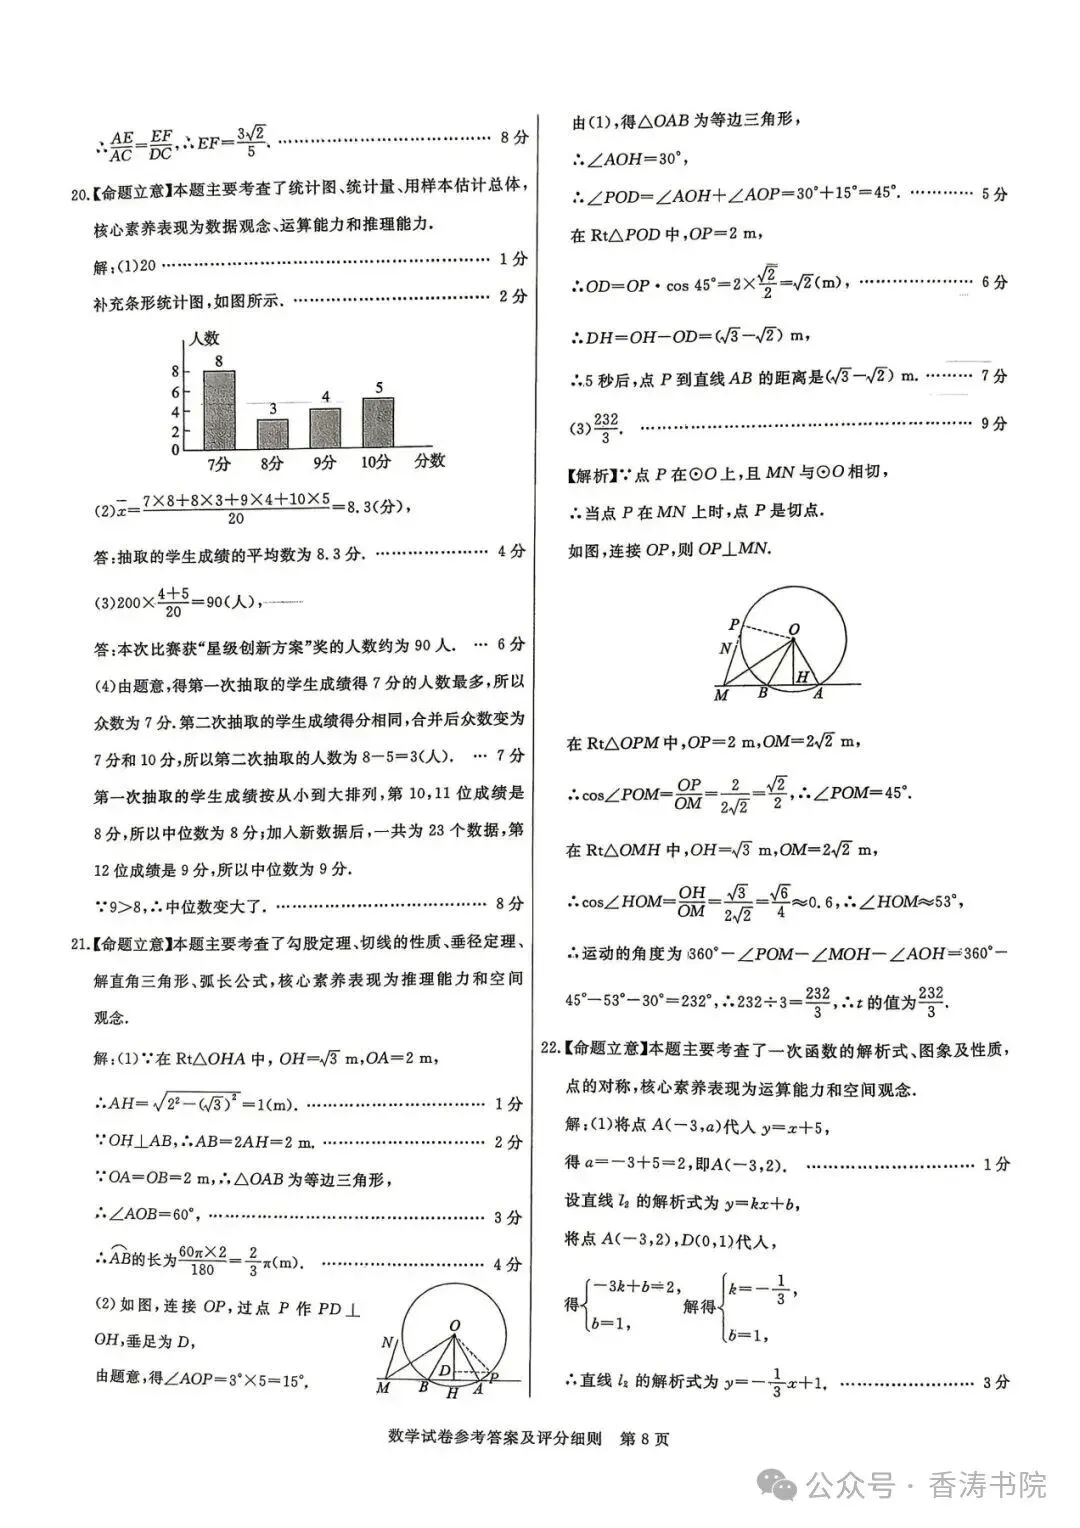 ∴AE/AC=EF/DC,∴EF=3√2/5. 8分
20.【命题立意】本题主要考查了统计图、统计量、用样本估计总体,
核心素养表现为数据观念、运算能力和推理能力.
解:(1)20 1分
补充条形统计图,如图所示. 2分
人数
8
6
4
2
0
8
3
4
5
7分 8分 9分 10分 分数
(2)x̄=(7×8+8×3+9×4+10×5)/20=8.3(分),
答:抽取的学生成绩的平均数为8.3分. 4分
(3)200×(4+5)/20=90(人),
答:本次比赛获“星级创新方案”奖的人数约为90人. … 6分
(4)由题意,得第一次抽取的学生成绩得7分的人数最多,所以
众数为7分.第二次抽取的学生成绩得分相同,合并后众数变为
7分和10分,所以第二次抽取的人数为8-5=3(人). … 7分
第一次抽取的学生成绩按从小到大排列,第10,11位成绩是
8分,所以中位数为8分;加入新数据后,一共为23个数据,第
12位成绩是9分,所以中位数为9分.
∵9>8,∴中位数变大了. 8分
21.【命题立意】本题主要考查了勾股定理、切线的性质、垂径定理、
解直角三角形、弧长公式,核心素养表现为推理能力和空间
观念.
解:(1)∵在Rt△OHA中,OH=√3 m,OA=2 m,
∴AH=√(2²-(√3)²)=1(m). 1分
∵OH⊥AB,∴AB=2AH=2 m. 2分
∵OA=OB=2 m,∴△OAB为等边三角形,
∴∠AOB=60°, 3分
∴⌒AB的长为60π×2/180=2/3π(m). 4分
(2)如图,连接OP,过点P作PD⊥
OH,垂足为D,
由题意,得∠AOP=3°×5=15°.
O
N
D
P
M B H A
由(1),得△OAB为等边三角形,
∴∠AOH=30°,
∴∠POD=∠AOH+∠AOP=30°+15°=45°. 5分
在Rt△POD中,OP=2 m,
∴OD=OP·cos 45°=2×√2/2=√2(m), 6分
∴DH=OH-OD=(√3-√2) m,
∴5秒后,点P到直线AB的距离是(√3-√2) m. 7分
(3)232/3. 9分
【解析】∵点P在⊙O上,且MN与⊙O相切,
∴当点P在MN上时,点P是切点.
如图,连接OP,则OP⊥MN.
P
O
N
H
M B A
在Rt△OPM中,OP=2 m,OM=2√2 m,
∴cos∠POM=OP/OM=2/2√2=√2/2,∴∠POM=45°.
在Rt△OMH中,OH=√3 m,OM=2√2 m,
∴cos∠HOM=OH/OM=√3/2√2=√6/4≈0.6,∴∠HOM≈53°,
∴运动的角度为360°-∠POM-∠MOH-∠AOH=360°-
45°-53°-30°=232°,∴232÷3=232/3,∴t的值为232/3.
22.【命题立意】本题主要考查了一次函数的解析式、图象及性质,
点的对称,核心素养表现为运算能力和空间观念.
解:(1)将点A(-3,a)代入y=x+5,
得a=-3+5=2,即A(-3,2). 1分
设直线l₂的解析式为y=kx+b,
将点A(-3,2),D(0,1)代入,
得{-3k+b=2, b=1, 解得{k=-1/3, b=1,
∴直线l₂的解析式为y=-1/3x+1. 3分
数学试卷参考答案及评分细则 第8页
公众号·香涛书院